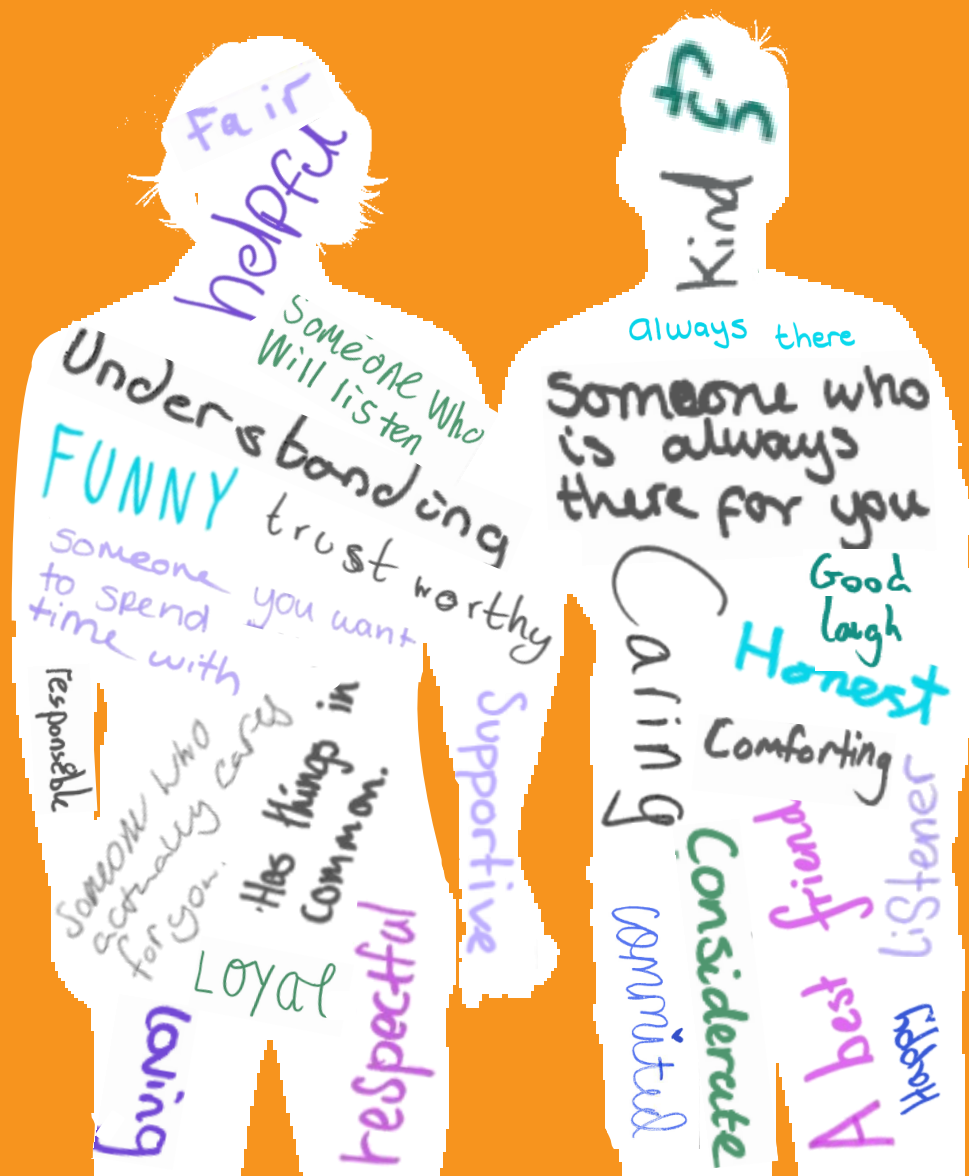 Fair
helpful
Someone Who
Will listen
Understanding
FUNNY
trust worthy
someone you want
to spend
time with
responseble
Someone who
actually cares
for you.
Has things in
common.
Supportive
LOYAL
respectful
loving
fun
Kind
always there
Someone who
is always
there for you
Caring
Good
laugh
Honest
Comforting
Listener
Considerate
A best friend
committed
Happy